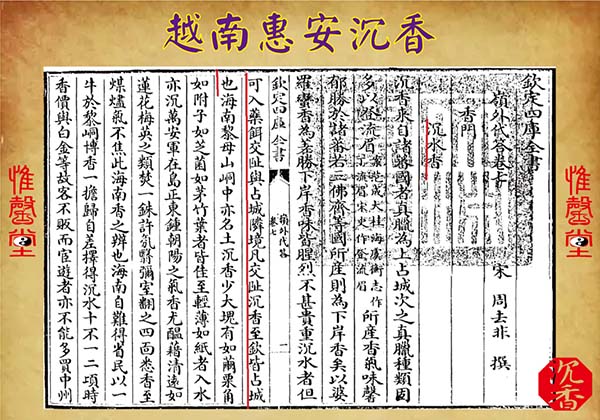 越南惠安沉香
惟馨堂
欽定四庫全書
嶺外代答卷七
宋 周去非 撰
香門
沉水香
沉香來自諸蕃國者真臘為上占城次之真臘種類固
多以登流眉 范成大桂海虞衡志作 流眉宋史作登流眉 所産香氣味馨
郁勝於諸蕃若三佛齊等國所産則為下岸香矣以婆
羅蠻香為差勝下岸香味皆腥烈不甚貴重沉水者但
欽定四庫全書
嶺外代答
卷七
二
可入藥餌交阯與占城隣境凡交阯沉香至欽皆占城
也海南黎母山峒中亦名土沉香少大塊有如繭栗角
如附子如芝菌如茅竹葉者皆佳至輕薄如紙者入水
亦沉萬安軍在島正東鍾朝陽之氣香尤醖藉清遠如
蓮花梅英之類焚一銖許氛翳彌室翻之四面悉香至
煤燼氣不焦此海南香之辨也海南自難得省民以一
牛於黎峒博香一擔歸自差擇得沉水十不一二頃時
香價與白金等故客不販而宦遊者亦不能多買中州
惟馨堂
沉香